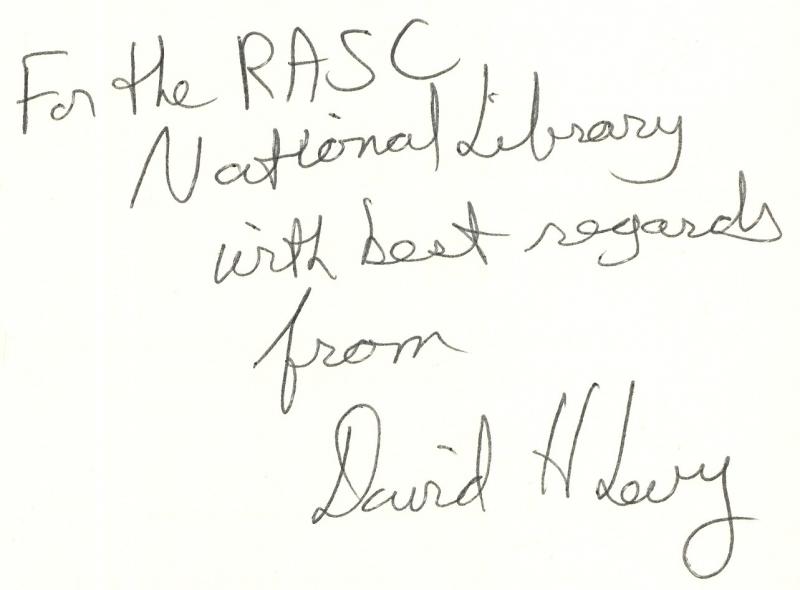 For the RASC
National Library
with best regards
from
David H Levy